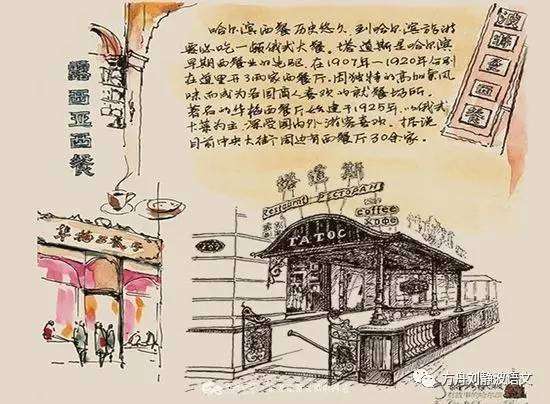 哈尔滨西餐历史悠久,到哈尔滨旅游
要必吃一顿俄式大餐。塔道斯是哈尔滨
早期西餐业的先驱,在1907年—1920年分别
在道里开了两家西餐厅,因独特的高加索风
味而成为各国商人喜欢的就餐场所。
著名的华梅西餐厅始建于1925年,以俄式
大菜为主,深受国内外游客喜欢。据说
目前中央大街周边有西餐厅30余家。
露西亚西餐
西餐
华梅西餐厅
塔道斯
Restaurant РЕСТОРАН
coffee
КОФЕ
ТАТОС
方舟刘静波语文